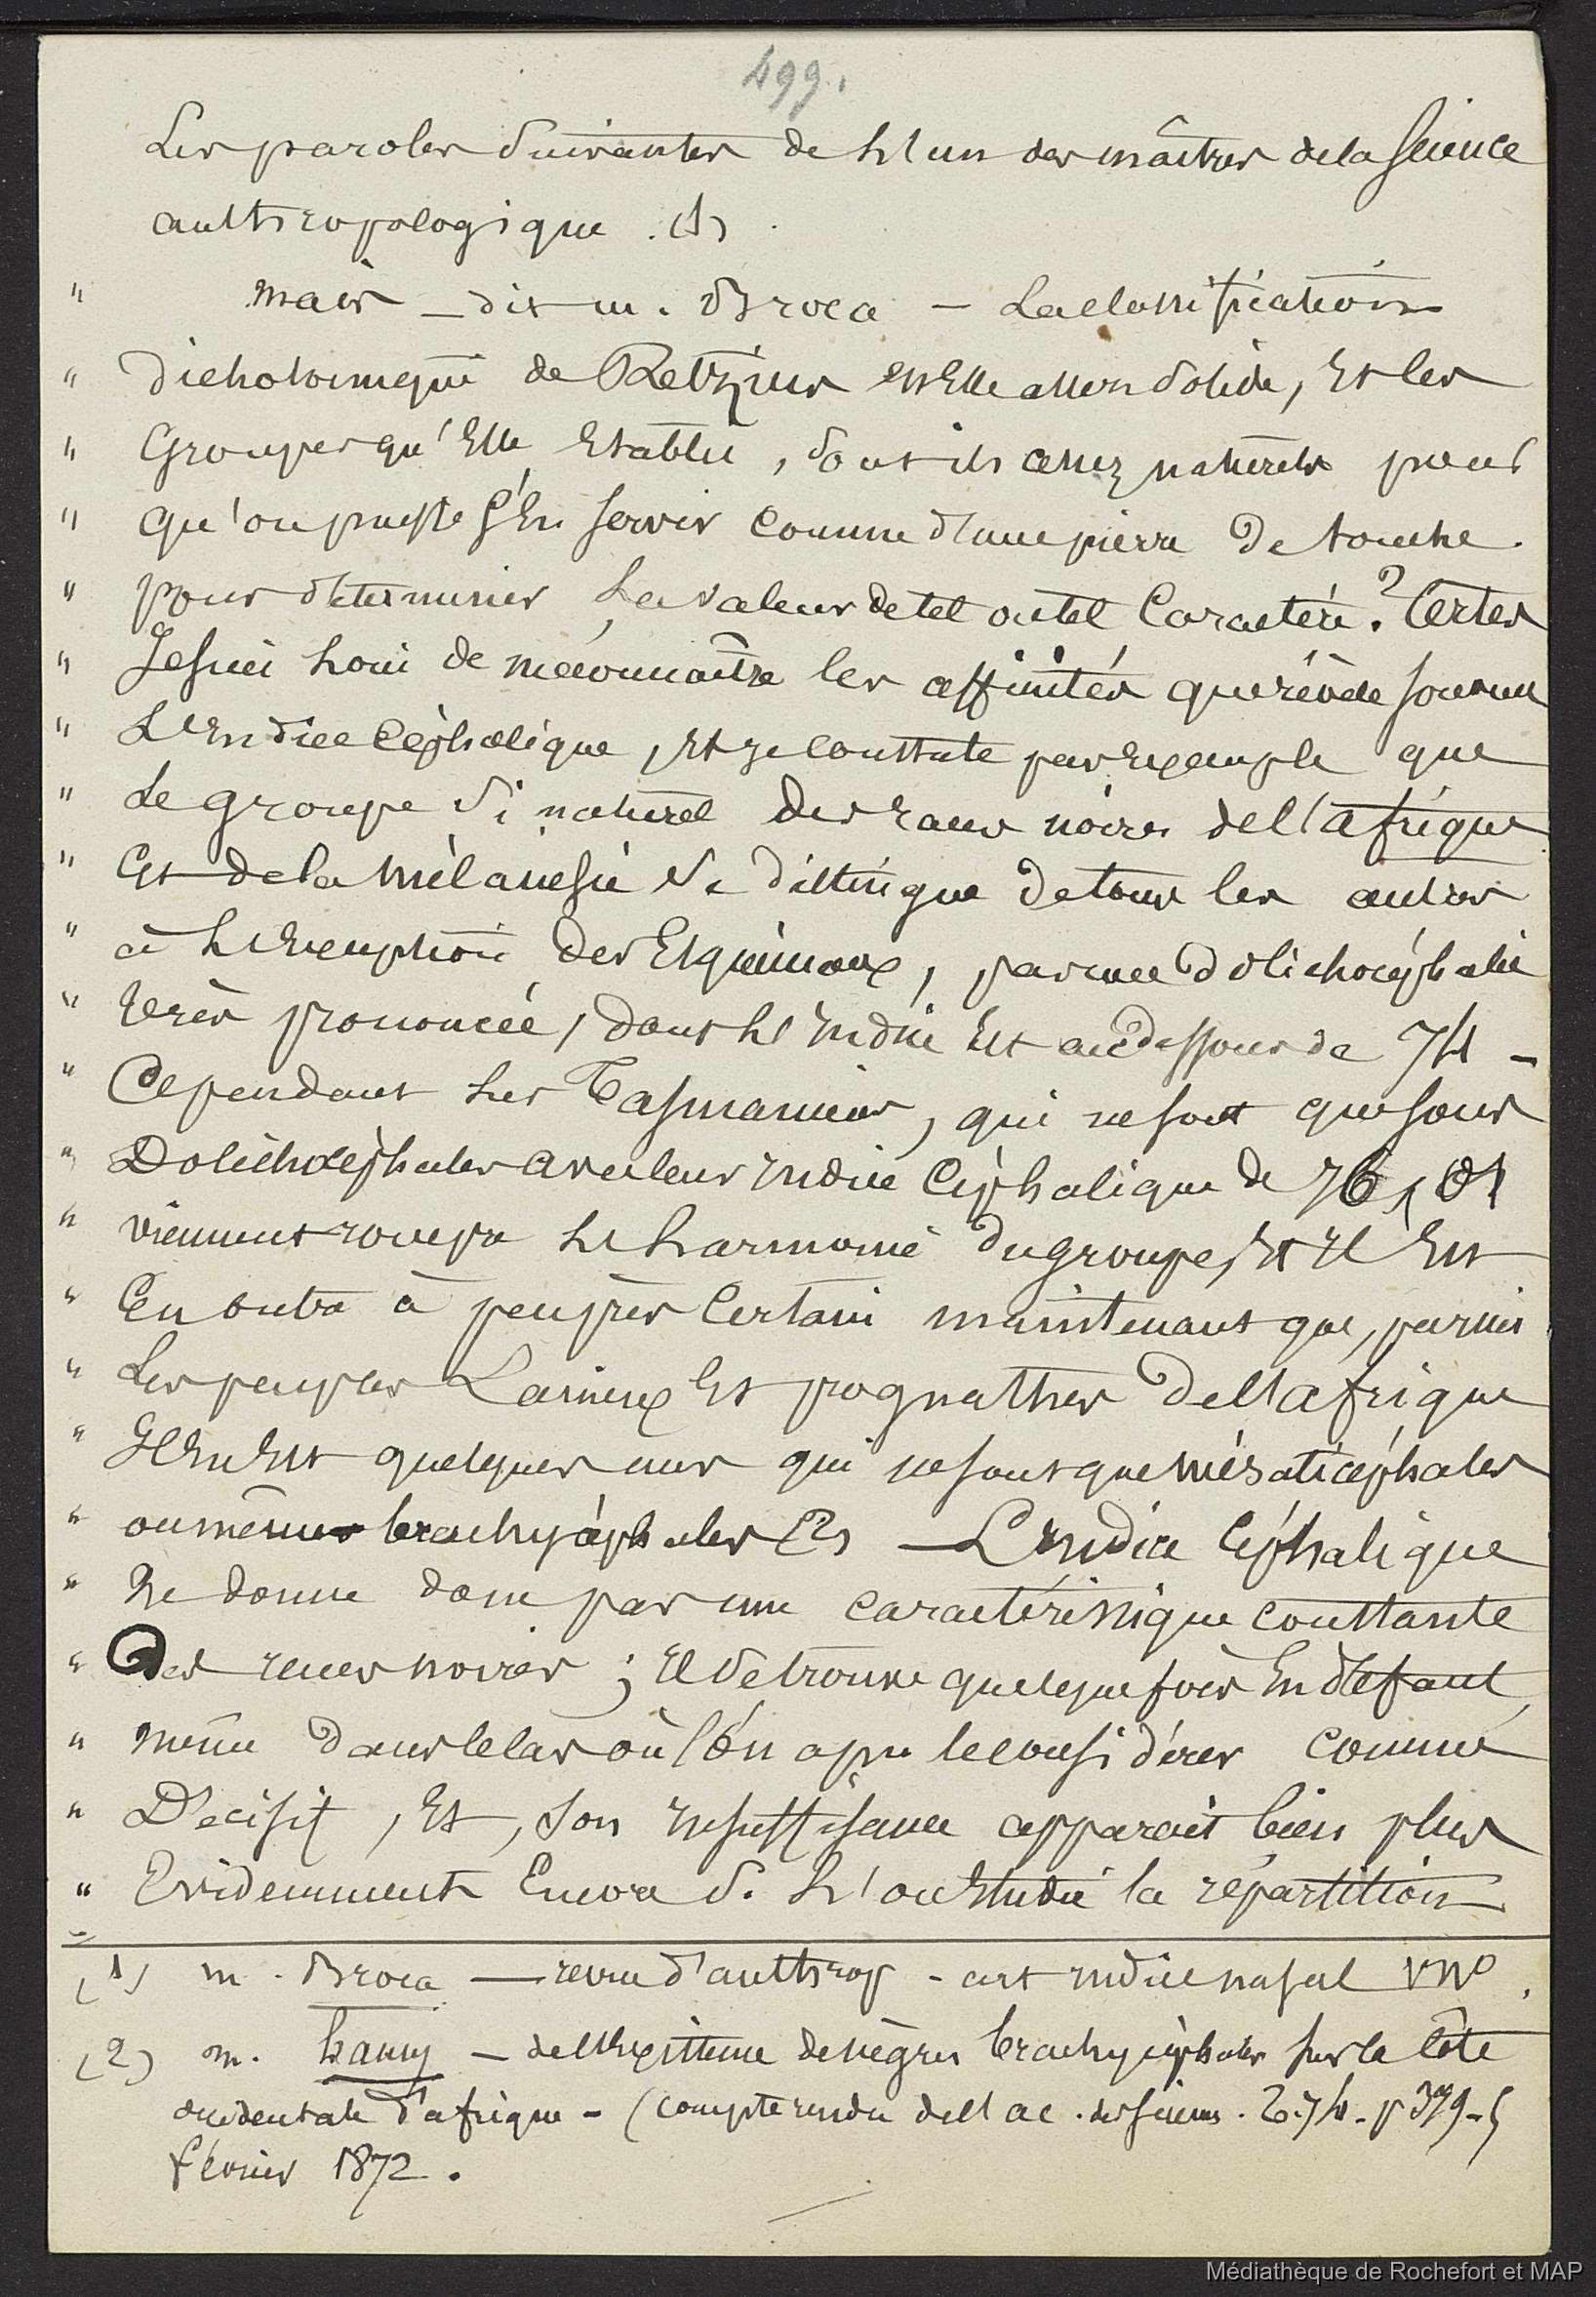 499.
Les paroles suivantes de l'un des maîtres de la science
anthropologique (1)
" mais — dit m. Broca — La classification
" dichotomique de Retzius est Elle assez solide, Et les
" Groupes qu'Elle Etablit, sont ils assez naturels pour
" qu'on puisse s'En servir comme d'une pierre de touche
" pour déterminer La valeur de tel ou tel Caractère ? Certes
" Je suis loin de méconnaître les affinités que révèle souvent
" L'Indice Céphalique, Et je constate par Exemple que
" Le groupe si naturel des races noires de l'afrique
" Et de la mélanesie se distingue de tous les autres
" à L'Exception des Esquimaux, par une Dolichocéphalie
" très prononcée, dont l'Indice Est au dessous de 74 -
" Cependant les Tasmaniens, qui ne sont que sous
" Dolichocéphales avec leur Indice Céphalique de 76,01
" viennent rompre l'harmonie du groupe, Et Il Est
" En outre à peu près Certain maintenant que, parmi
" Les peuples Laineux Et prognathes De l'Afrique
" Il En Est quelques uns qui ne sont que mésaticéphales
" ou même brachycéphales (2) — L'Indice Céphalique
" Ne donne donc pas une caractéristique constante
" Des races noires ; Il se trouve quelquefois En défaut,
" même dans le cas où l'on a pu le considérer comme
" Décisif, Et, son Insuffisance apparait bien plus
" Evidemment Encore si L'on Etudie la répartition
(1) m. Broca — revue d'anthrop - art Indice nasal
(2) m. hamy — de l'Existence de nègres brachycéphales sur la côte
occidentale d'afrique - (compte rendu de l'ac. des sciences. T. 74 - p 379 - 5
février 1872.
Médiathèque de Rochefort et MAP